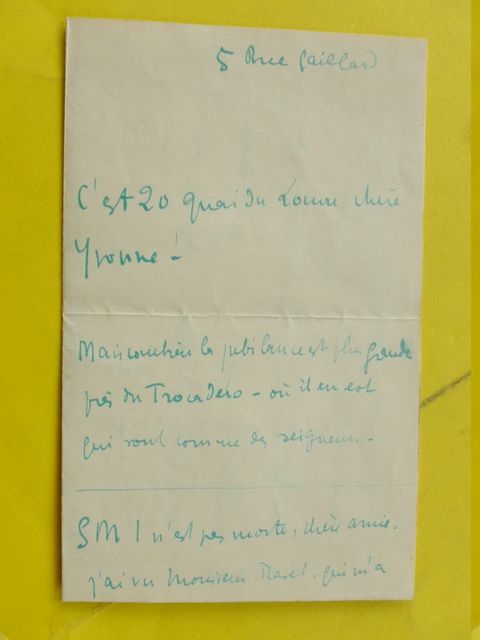 5 Rue Gaillard
C'est 20 quai du Louvre, chère
Yvonne !
Mais combien la jubilance est plus grande
près du Trocadéro - où il en est
qui sont comme des seigneurs -
SMI n'est pas morte, chère amie.
j'ai vu Monsieur Ravel. qui m'a